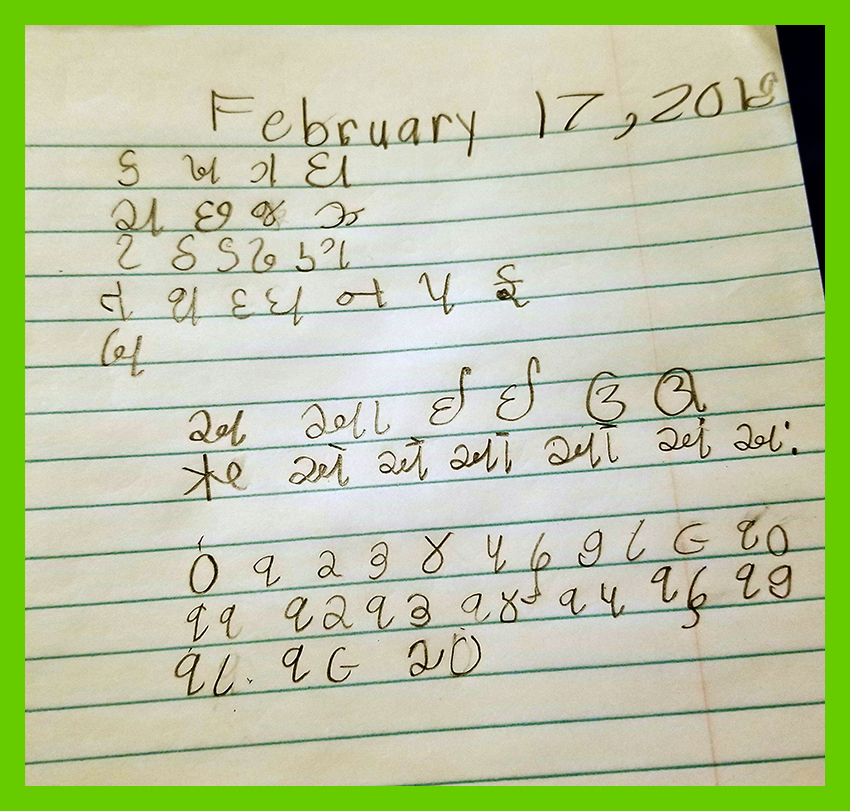 February 17, 2018
ક ખ ગ ઘ
ચ છ જ ઝ
ટ ઠ ડ ઢ ણ
ત થ દ ધ ન પ ફ
બ
અ આ ઈ ઈ ઉ ઊ
ઋ એ ઐ ઓ ઔ અં અઃ
૦ ૧ ૨ ૩ ૪ ૫ ૬ ૭ ૮ ૯ ૧૦
૧૧ ૧૨ ૧૩ ૧૪ ૧૫ ૧૬ ૧૭
૧૮ ૧૯ ૨૦